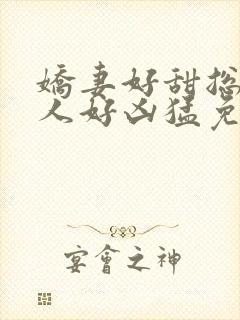 嬌妻好甜总
人好凶猛免
宴會之神